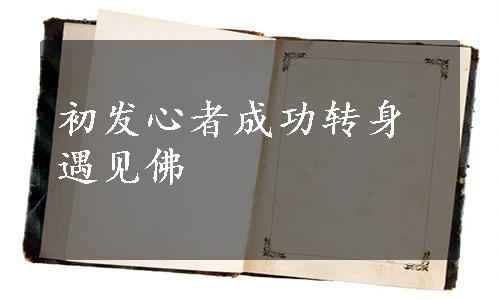 初发心者成功转身
遇见佛